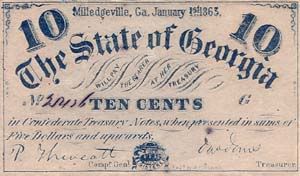 Milledgeville, Ga. January 1st 1863.
10 10
The State of Georgia
WILL PAY THE BEARER AT HER TREASURY
No
TEN CENTS G
in Confederate Treasury Notes, when presented in sums of
Five Dollars and upwards.
Compt. Genl. Treasurer